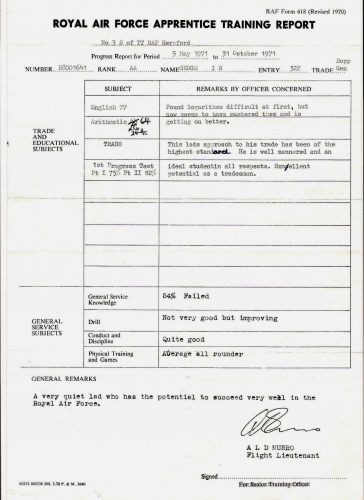 RAF Form 618 (Revised 1970)
ROYAL AIR FORCE APPRENTICE TRAINING REPORT
No 3 S of TT RAF Hereford
Progress Report for Period 5 May 1971 to 31 October 1971
Supp
NUMBER RANK AA NAME I S ENTRY 322 TRADE Gen
SUBJECT REMARKS BY OFFICER CONCERNED
TRADE
AND
EDUCATIONAL
SUBJECTS
English 77
Arithmetic 64
Found logarithms difficult at first, but
now seems to have mastered them and is
getting on better.
TRADE
This lads approach to his trade has been of the
highest standard. He is well mannered and an
1st Progress Test
Pt I 75% Pt II 82%
ideal studentin all respects. Excellent
potential as a tradesman.
GENERAL
SERVICE
SUBJECTS
General Service
Knowledge
54% Failed
Drill
Not very good but improving
Conduct and
Discipline
Quite good
Physical Training
and Games
Average all rounder
GENERAL REMARKS
A very quiet lad who has the potential to succeed very well in the
Royal Air Force.
A L D MUNRO
Flight Lieutenant
Signed
For Senior Training Officer